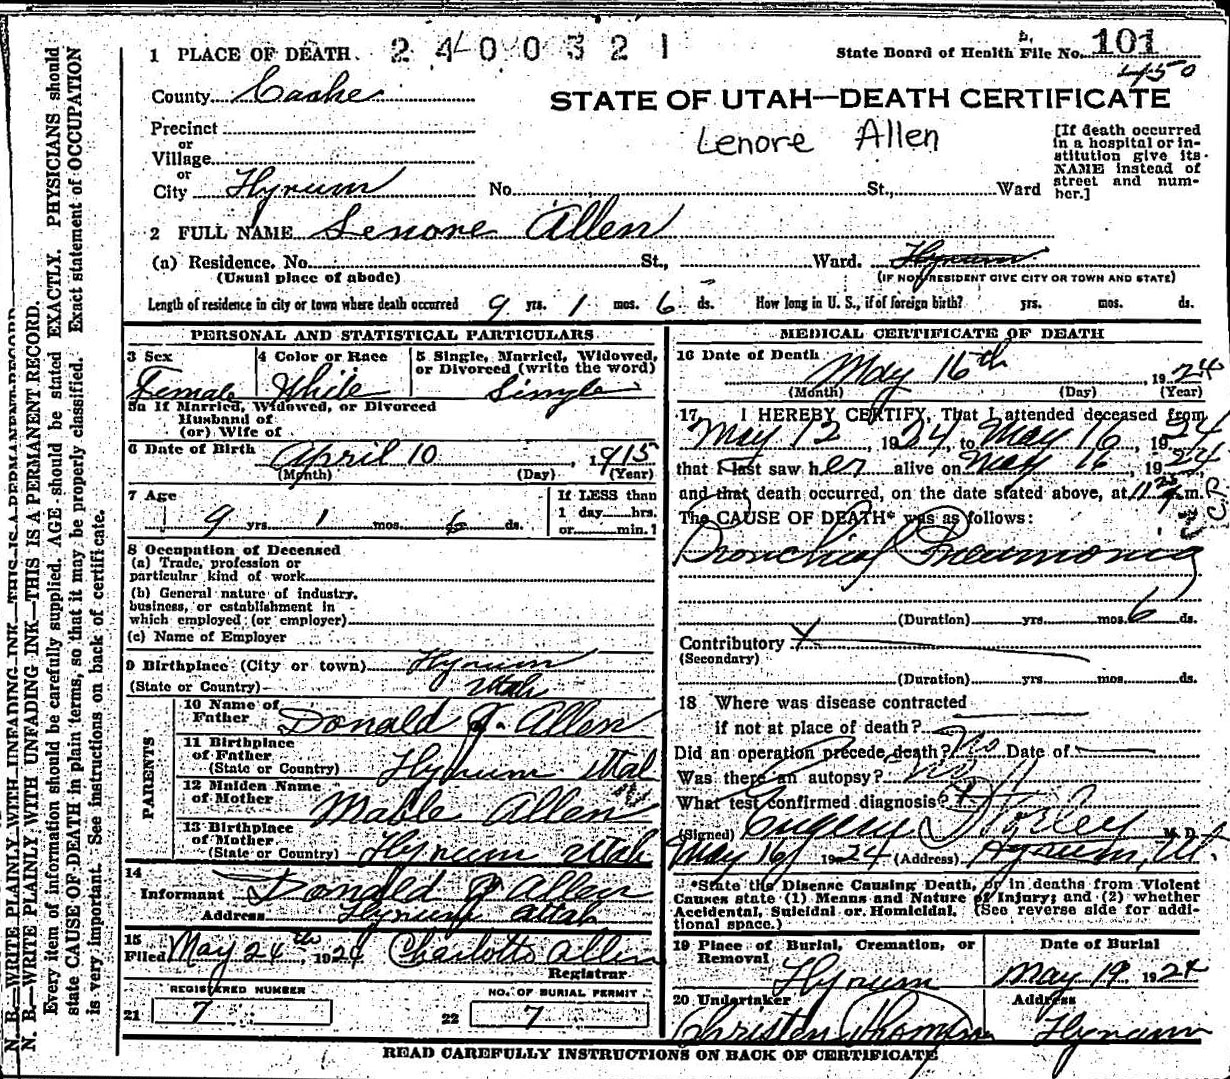 1 PLACE OF DEATH. 2400321 State Board of Health File No. 101
450
County Cache
STATE OF UTAH—DEATH CERTIFICATE
Lenore Allen
Precinct
or
Village
or
City Hyrum No. St., Ward
[If death occurred
in a hospital or in-
stitution give its
NAME instead of
street and num-
ber.]
2 FULL NAME Lenore Allen
(a) Residence. No. St., Ward. Hyrum
(Usual place of abode) (IF NON-RESIDENT GIVE CITY OR TOWN AND STATE)
Length of residence in city or town where death occurred 9 yrs. 1 mos. 6 ds. How long in U. S., if of foreign birth? yrs. mos. ds.
PERSONAL AND STATISTICAL PARTICULARS
3 Sex
Female
4 Color or Race
White
5 Single, Married, Widowed,
or Divorced (write the word)
Single
5a If Married, Widowed, or Divorced
Husband of
(or) Wife of
6 Date of Birth April 10, 1915
(Month) (Day) (Year)
7 Age
9 yrs. 1 mos. 6 ds.
If LESS than
1 day hrs.
or min.
8 Occupation of Deceased
(a) Trade, profession or
particular kind of work
(b) General nature of industry,
business, or establishment in
which employed (or employer)
(c) Name of Employer
9 Birthplace (City or town) Hyrum
(State or Country) Utah
PARENTS
10 Name of
Father Donald J. Allen
11 Birthplace
of Father
(State or Country) Hyrum Utah
12 Maiden Name
of Mother Mable Allen
13 Birthplace
of Mother
(State or Country) Hyrum Utah
14
Informant Donald J Allen
Address Hyrum Utah
15
Filed May 24th, 1924 Charlotte Allen
Registrar
REGISTERED NUMBER
21 7
NO. OF BURIAL PERMIT
22 7
MEDICAL CERTIFICATE OF DEATH
16 Date of Death May 16th, 1924
(Month) (Day) (Year)
17 I HEREBY CERTIFY, That I attended deceased from
May 12, 1924, to May 16, 1924
that I last saw her alive on May 16, 1924
and that death occurred, on the date stated above, at m.
The CAUSE OF DEATH* was as follows:
C.R.
Bronchial Pneumonia
(Duration) yrs. mos. 6 ds.
Contributory
(Secondary)
(Duration) yrs. mos. ds.
18 Where was disease contracted
if not at place of death?
Did an operation precede death? No Date of
Was there an autopsy? No
What test confirmed diagnosis?
(Signed) M. D.
May 16, 1924 (Address) Hyrum, Ut.
*State the Disease Causing Death, or in deaths from Violent
Causes state (1) Means and Nature of Injury; and (2) whether
Accidental, Suicidal or Homicidal. (See reverse side for addi-
tional space.)
19 Place of Burial, Cremation, or
Removal
Hyrum
Date of Burial
May 19 1924
20 Undertaker
Christen Thompson
Address
Hyrum
READ CAREFULLY INSTRUCTIONS ON BACK OF CERTIFICATE
N. B.—WRITE PLAINLY WITH UNFADING INK—THIS IS A PERMANENT RECORD
N. B.—WRITE PLAINLY WITH UNFADING INK—THIS IS A PERMANENT RECORD.
Every item of information should be carefully supplied. AGE should be stated EXACTLY. PHYSICIANS should
state CAUSE OF DEATH in plain terms, so that it may be properly classified. Exact statement of OCCUPATION
is very important. See instructions on back of certificate.